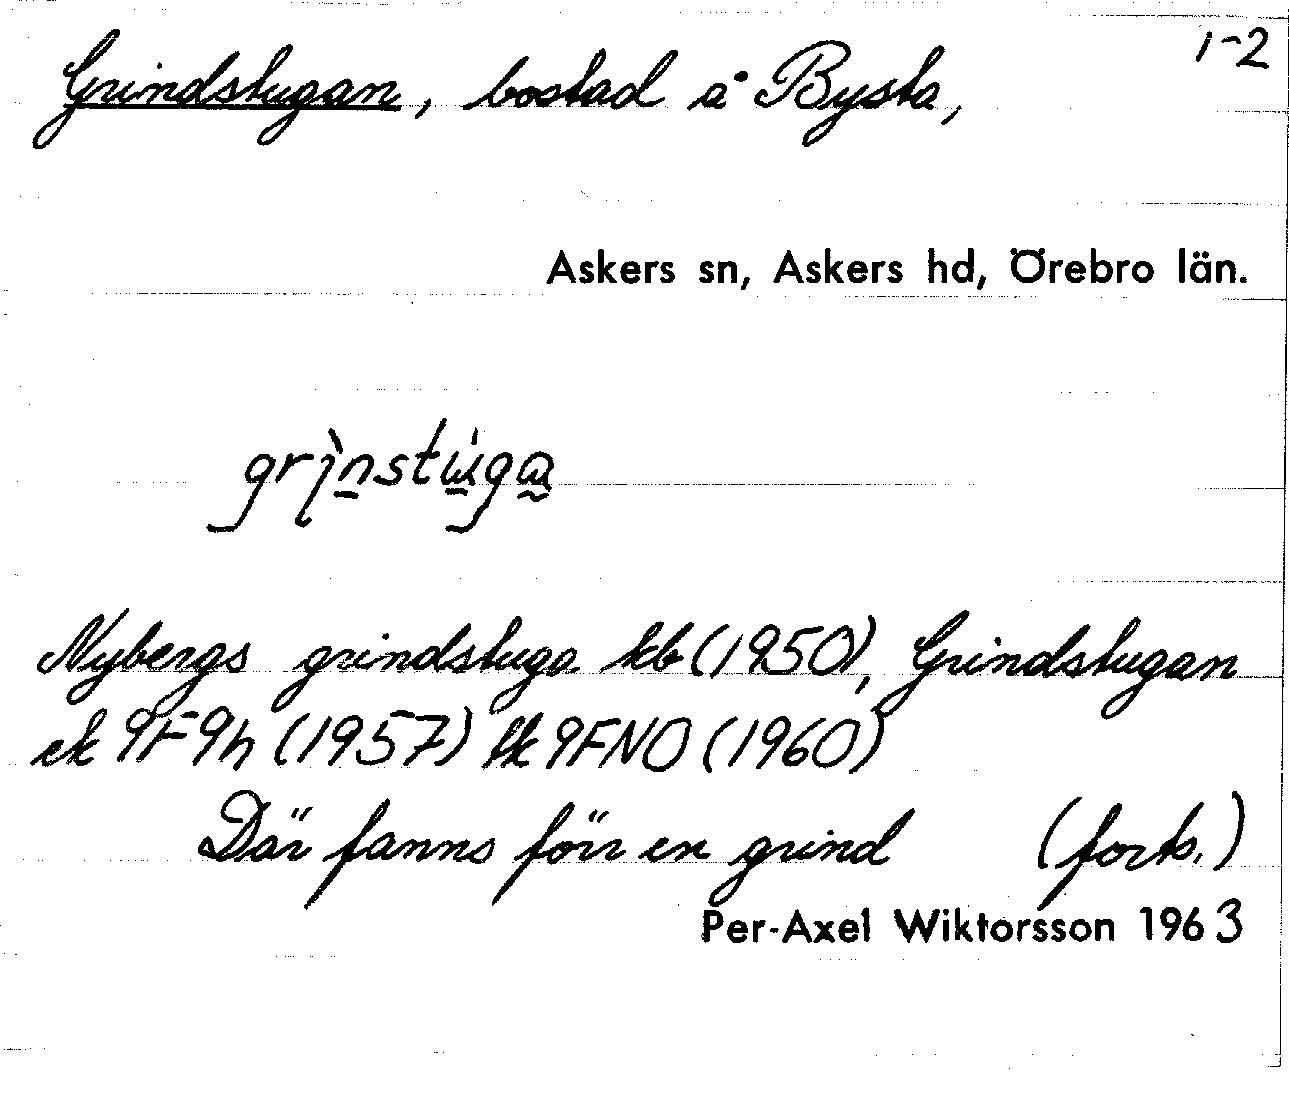 1-2
Grindstugan, bostad å Bysta,
Askers sn, Askers hd, Örebro län.
grinstuga
Nybergs grindstuga kb (1950), Grindstugan
ek 9F9h (1957) tk 9FNO (1960)
Där fanns förr en grind (forts.)
Per-Axel Wiktorsson 1963